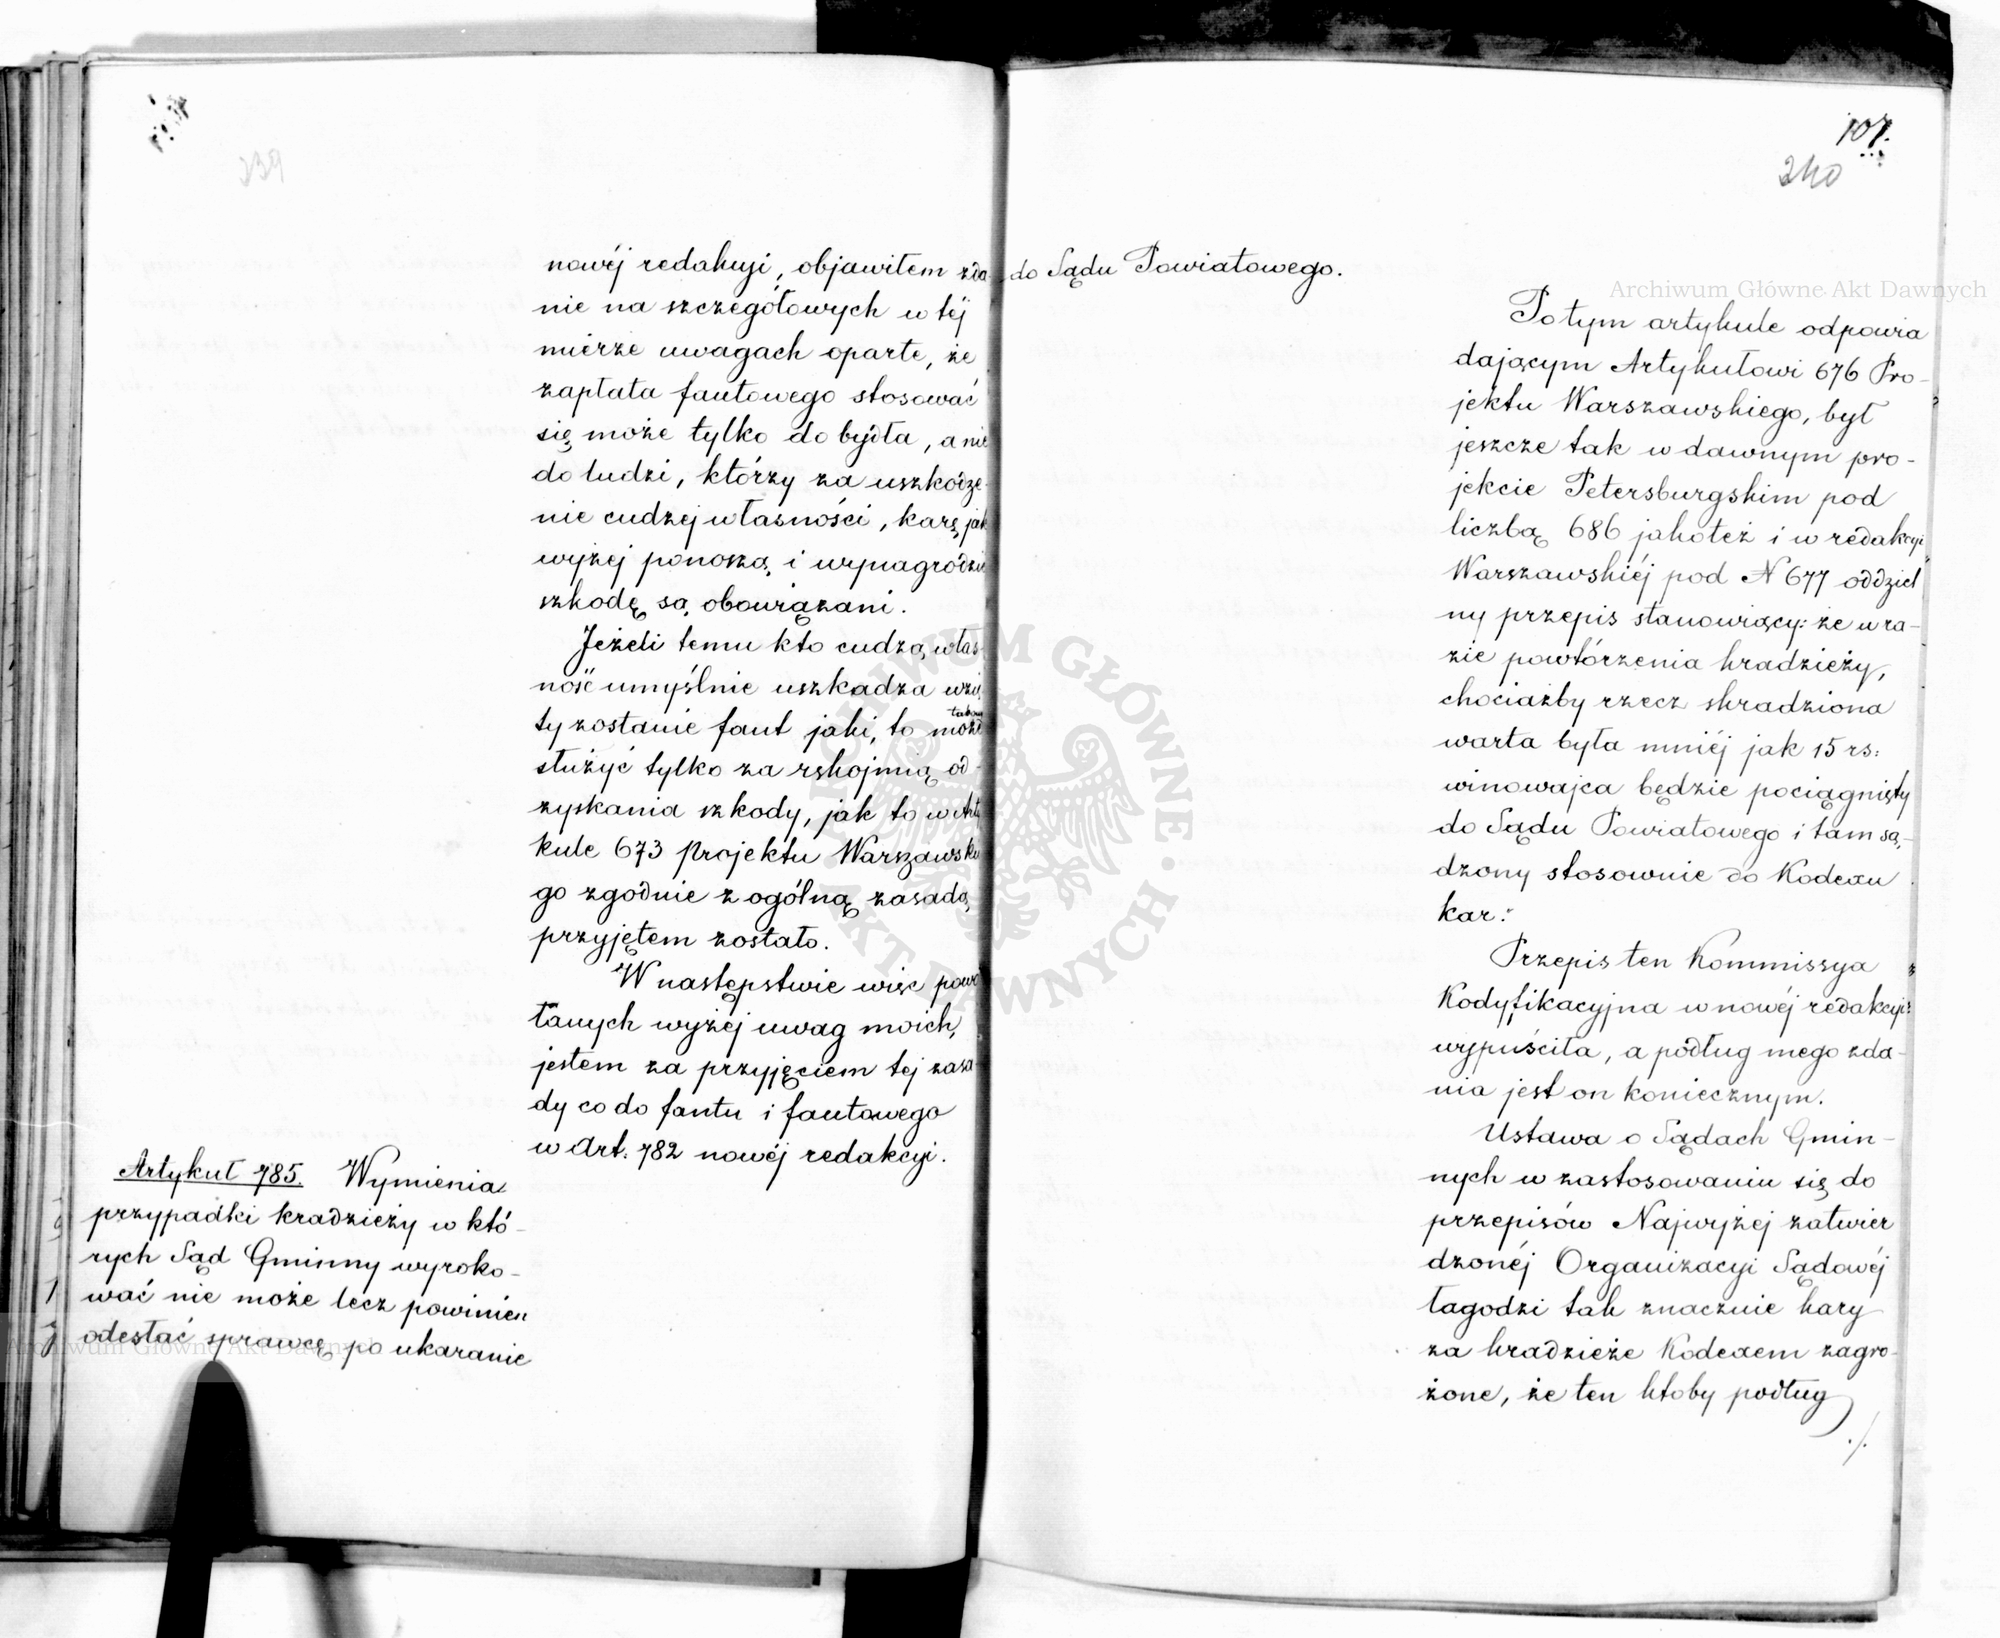 239
nowéj redakcyi, objawiłem zda
nie na szczegółowych w téj
mierze uwagach oparte, że
zapłata fantowego stosować
się może tylko do bydła, a nie
do ludzi, którzy za uszkodze
nie cudzej własności, karę jak
wyżej ponoszą i wynagrodzić
szkodę są obowiązani.
Jeżeli temu kto cudzą włas
ność umyślnie uszkadza wzię
ty zostanie fant jaki, to może
takowy
służyć tylko za rękojmią od-
zyskania szkody, jak to w Arty
kule 673 projektu Warszawskie
go zgodnie z ogólną zasadą
przyjętem zostało.
W następstwie więc powo
łanych wyżej uwag moich,
jestem za przyjęciem tej zasa
dy co do fantu i fantowego
w Art. 782 nowéj redakcyi.
Artykuł 785. Wymienia
przypadki kradzieży w któ-
rych Sąd Gminny wyroko-
wać nie może lecz powinien
odesłać sprawcę po ukaranie
107.
240
do Sądu Powiatowego.
Po tym artykule odpowia
dającym Artykułowi 676 Pro-
jektu Warszawskiego, był
jeszcze tak w dawnym pro-
jekcie Petersburgskim pod
liczbą 686 jakoteż i w redakcyi
Warszawskiéj pod N 677 oddziel
ny przepis stanowiący: że w ra-
zie powtórzenia kradzieży,
chociażby rzecz skradziona
warta była mniéj jak 15 rs:
winowajca będzie pociągnięty
do Sądu Powiatowego i tam są-
dzony stosownie do Kodexu
kar:
Przepis ten Kommissya
Kodyfikacyjna w nowéj redakcyi
wypuściła, a podług mego zda-
nia jest on koniecznym.
Ustawa o Sądach Gmin-
nych w zastosowaniu się do
przepisów Najwyżej zatwier
dzonéj Organizacyi Sądowéj
łagodzi tak znacznie kary
za kradzieże Kodexem zagro-
żone, że ten ktoby podług
./.
Archiwum Główne Akt Dawnych
Archiwum Główne Akt Dawnych
ARCHIWUM GŁÓWNE AKT DAWNYCH